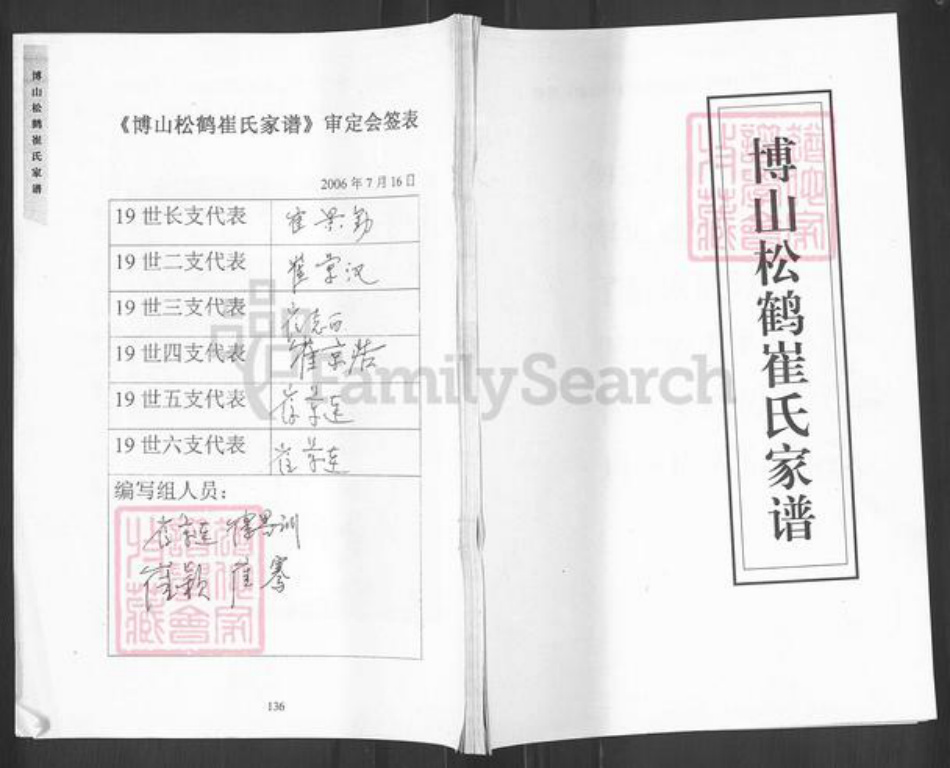 博山松鹤崔氏家谱
《博山松鹤崔氏家谱》审定会签表
2006年7月16日
19世长支代表 崔景勤
19世二支代表 崔京汉
19世三支代表 崔志
19世四支代表 崔京浩
19世五支代表 崔景廷
19世六支代表 崔景连
编写组人员：
崔景连 崔昌训
崔颖 崔骞
136
博山松鹤崔氏家谱
FamilySearch